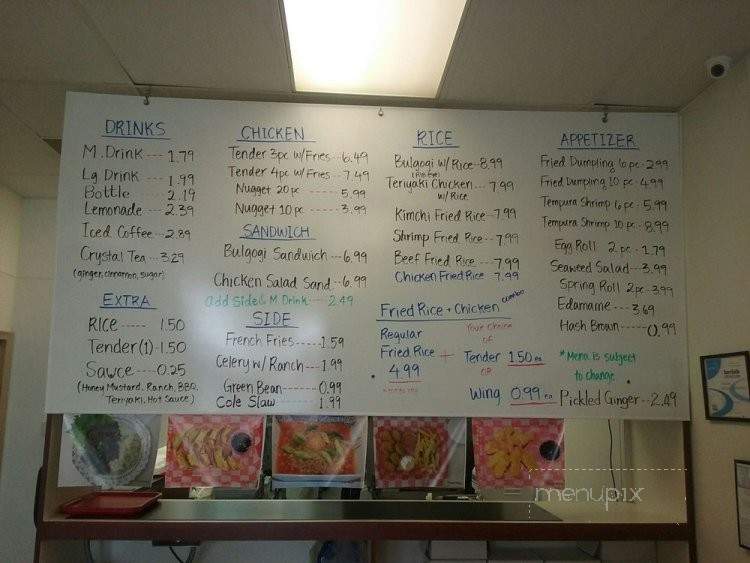 DRINKS
M. Drink ---- 1.79
Lg Drink ---- 1.99
Bottle ----- 2.19
Lemonade ---- 2.39
Iced Coffee -- 2.89
Crystal Tea --- 3.29
(ginger, cinnamon, sugar)
EXTRA
Rice ----- 1.50
Tender (1) - 1.50
Sawce ---- 0.25
(Honey Mustard, Ranch, BBQ,
Teriyaki, Hot Sauce)
CHICKEN
Tender 3pc w/Fries -- 6.49
Tender 4pc w/Fries -- 7.49
Nugget 20 pc ------ 5.99
Nugget 10 pc ------ 3.99
SANDWICH
Bulgogi Sandwich -- 6.99
Chicken Salad Sand -- 6.99
add Side & M Drink --- 2.49
SIDE
French Fries ---- 1.59
Celery w/ Ranch --- 1.99
Green Bean ------ 0.99
Cole Slaw ------ 1.99
RICE
Bulgogi w/ Rice -- 8.99
Teriyaki Chicken --- 7.99
w/ Rice
Kimchi Fried Rice -- 7.99
Shrimp Fried Rice -- 7.99
Beef Fried Rice ---- 7.99
Chicken Fried Rice 7.99
Fried Rice + Chicken combo
Regular
Fried Rice +
4.99
Your Choice
OF
Tender 1.50 ea
OR
Wing 0.99 ea
APPETIZER
Fried Dumpling 6 pc - 2.99
Fried Dumpling 10 pc - 4.99
Tempura Shrimp 6 pc - 5.99
Tempura Shrimp 10 pc - 8.99
Egg Roll 2 pc - 1.79
Seaweed Salad -- 3.99
Spring Roll 2 pc - 3.99
Edamame ---- 3.69
Hash Brown ----- 0.99
* Menu is subject
to change.
Pickled Ginger -- 2.49
menupix